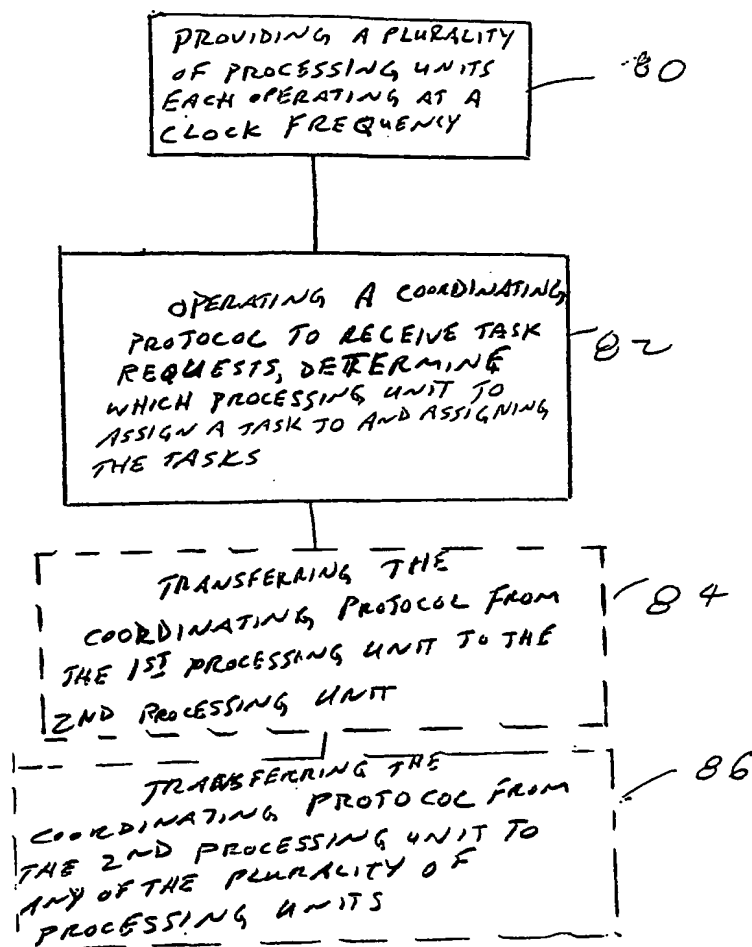 PROVIDING A PLURALITY
OF PROCESSING UNITS
EACH OPERATING AT A
CLOCK FREQUENCY
80
OPERATING A COORDINATING
PROTOCOL TO RECEIVE TASK
REQUESTS, DETERMINE
WHICH PROCESSING UNIT TO
ASSIGN A TASK TO AND ASSIGNING
THE TASKS
82
TRANSFERRING THE
COORDINATING PROTOCOL FROM
THE 1ST PROCESSING UNIT TO THE
2ND PROCESSING UNIT
84
TRANSFERRING THE
COORDINATING PROTOCOL FROM
THE 2ND PROCESSING UNIT TO
ANY OF THE PLURALITY OF
PROCESSING UNITS
86